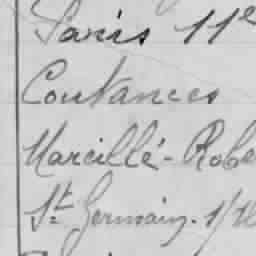 Paris 11e
Coutances
Marcillé-Robe
St Germain-s/Il